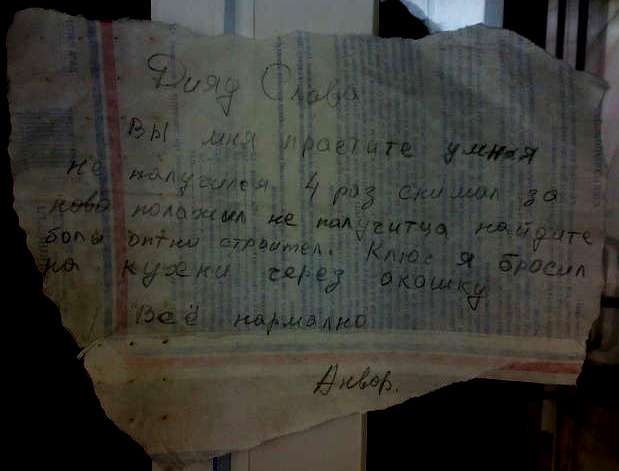 Дияд Слава
Вы мня прастите умня
не палучился 4 раз снимал за
ново полажил не палучитца найдите
болы опитни строител. Ключ я бросил
на кухни через акашку
Всё нармално
Анвар.